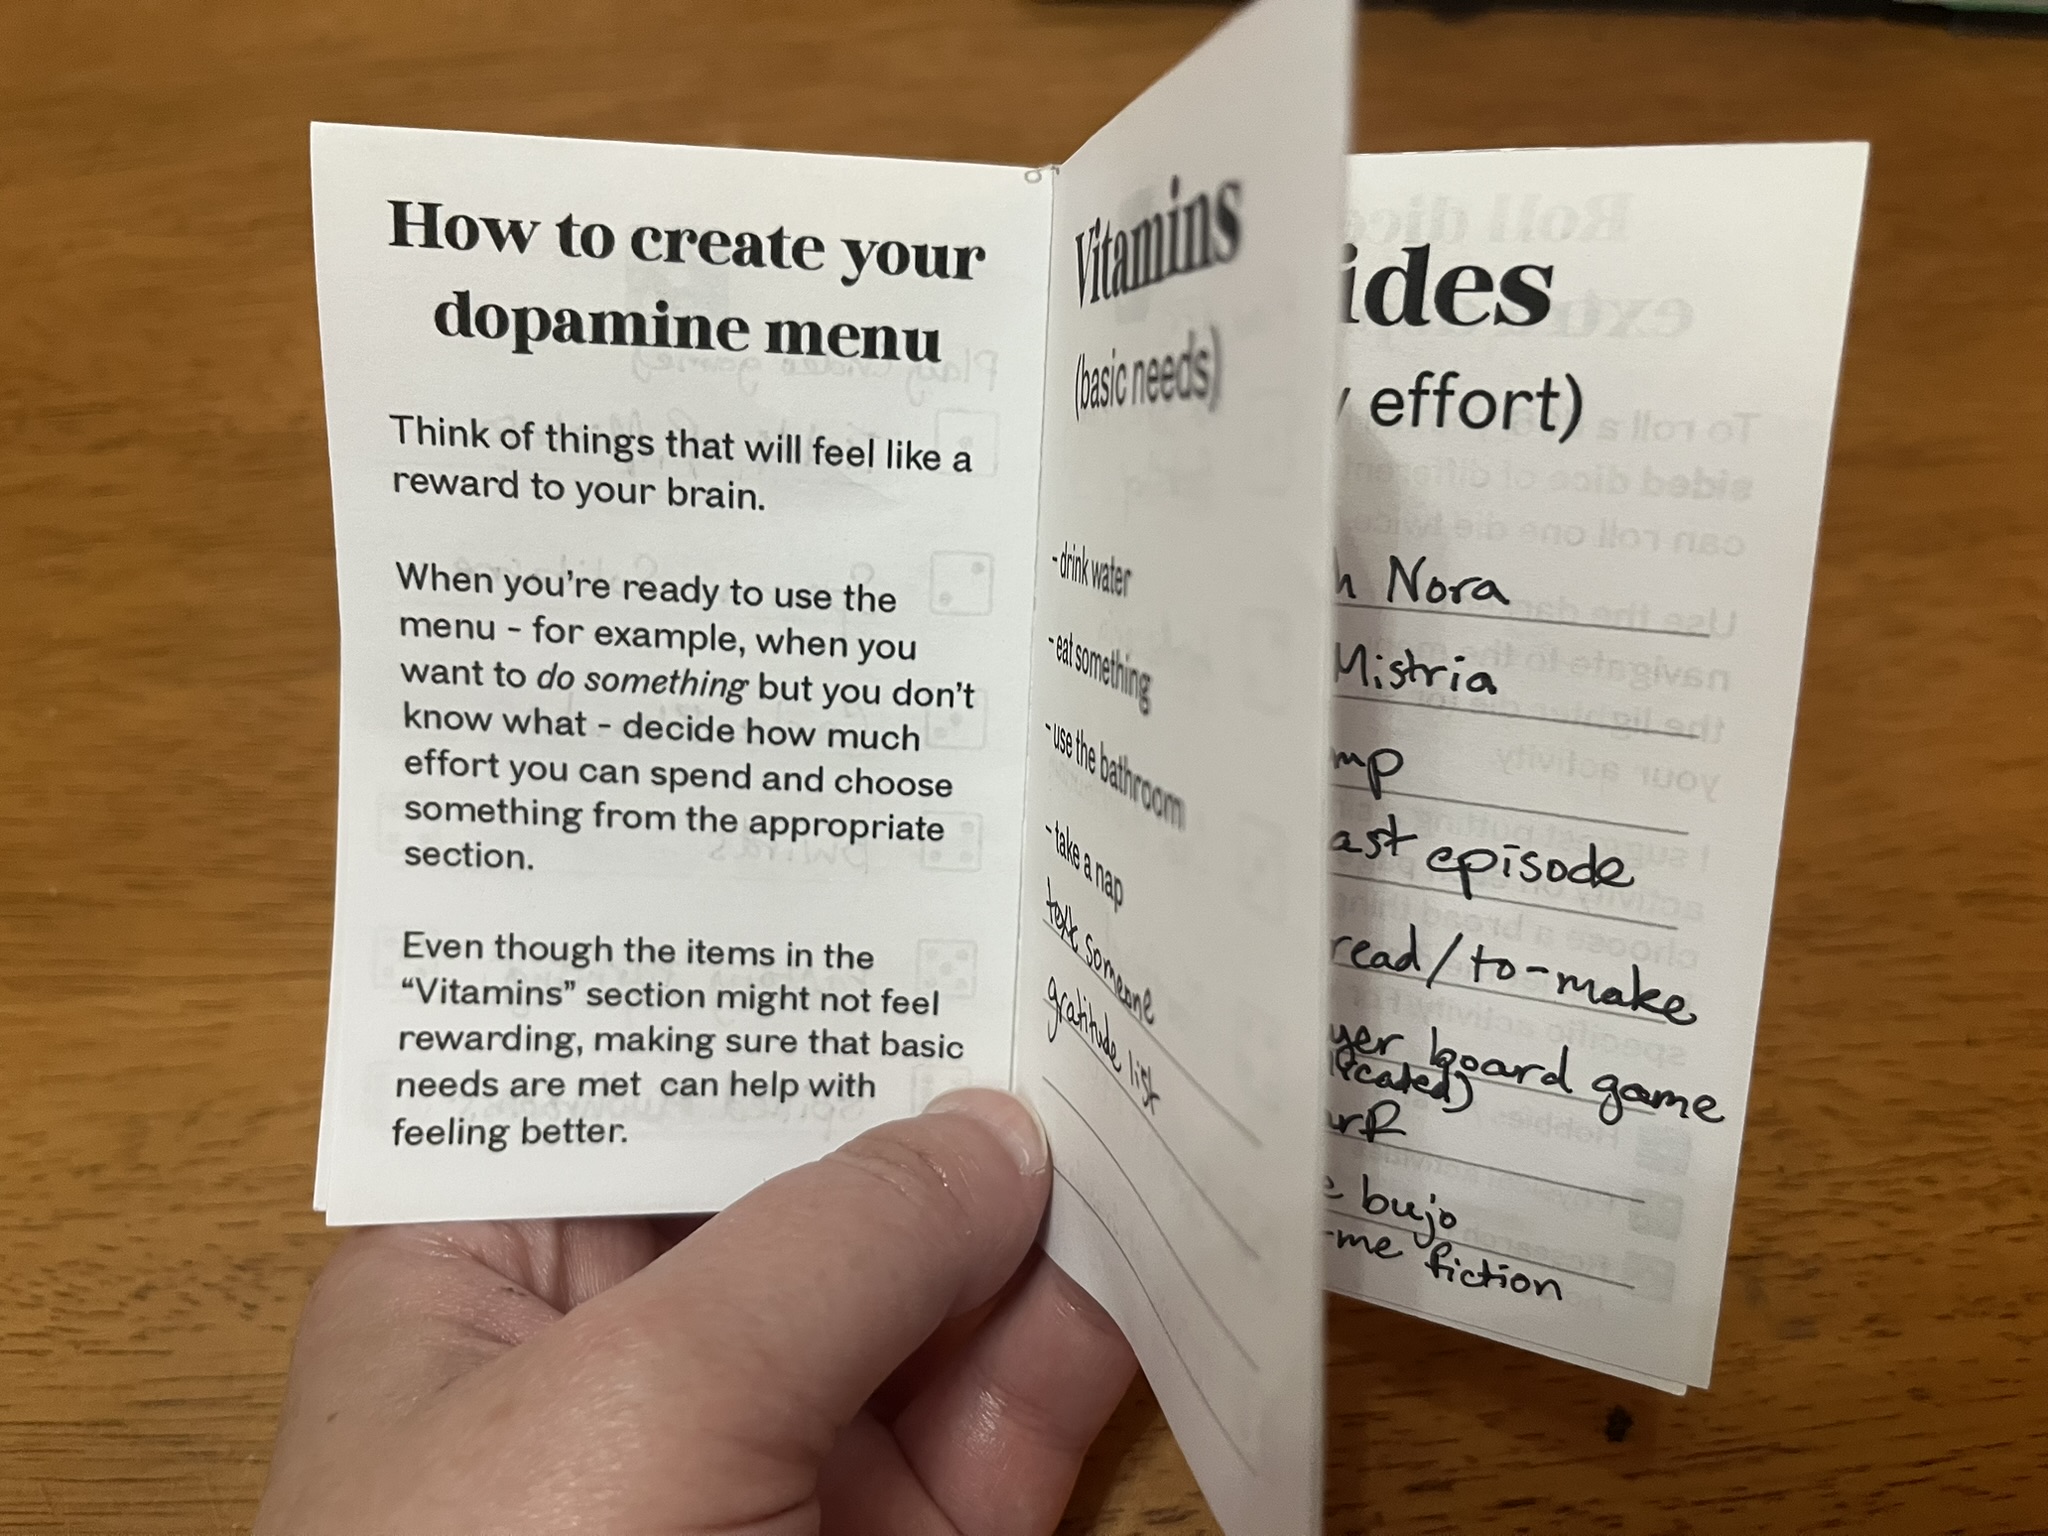 How to create your
dopamine menu
Think of things that will feel like a
reward to your brain.
When you're ready to use the
menu - for example, when you
want to do something but you don't
know what - decide how much
effort you can spend and choose
something from the appropriate
section.
Even though the items in the
“Vitamins” section might not feel
rewarding, making sure that basic
needs are met can help with
feeling better.
Vitamins
(basic needs)
- drink water
- eat something
- use the bathroom
- take a nap
text someone
gratitude list
ides
effort)
Nora
Mistria
mp
ast episode
read/to-make
yer board game
bujo
-me fiction